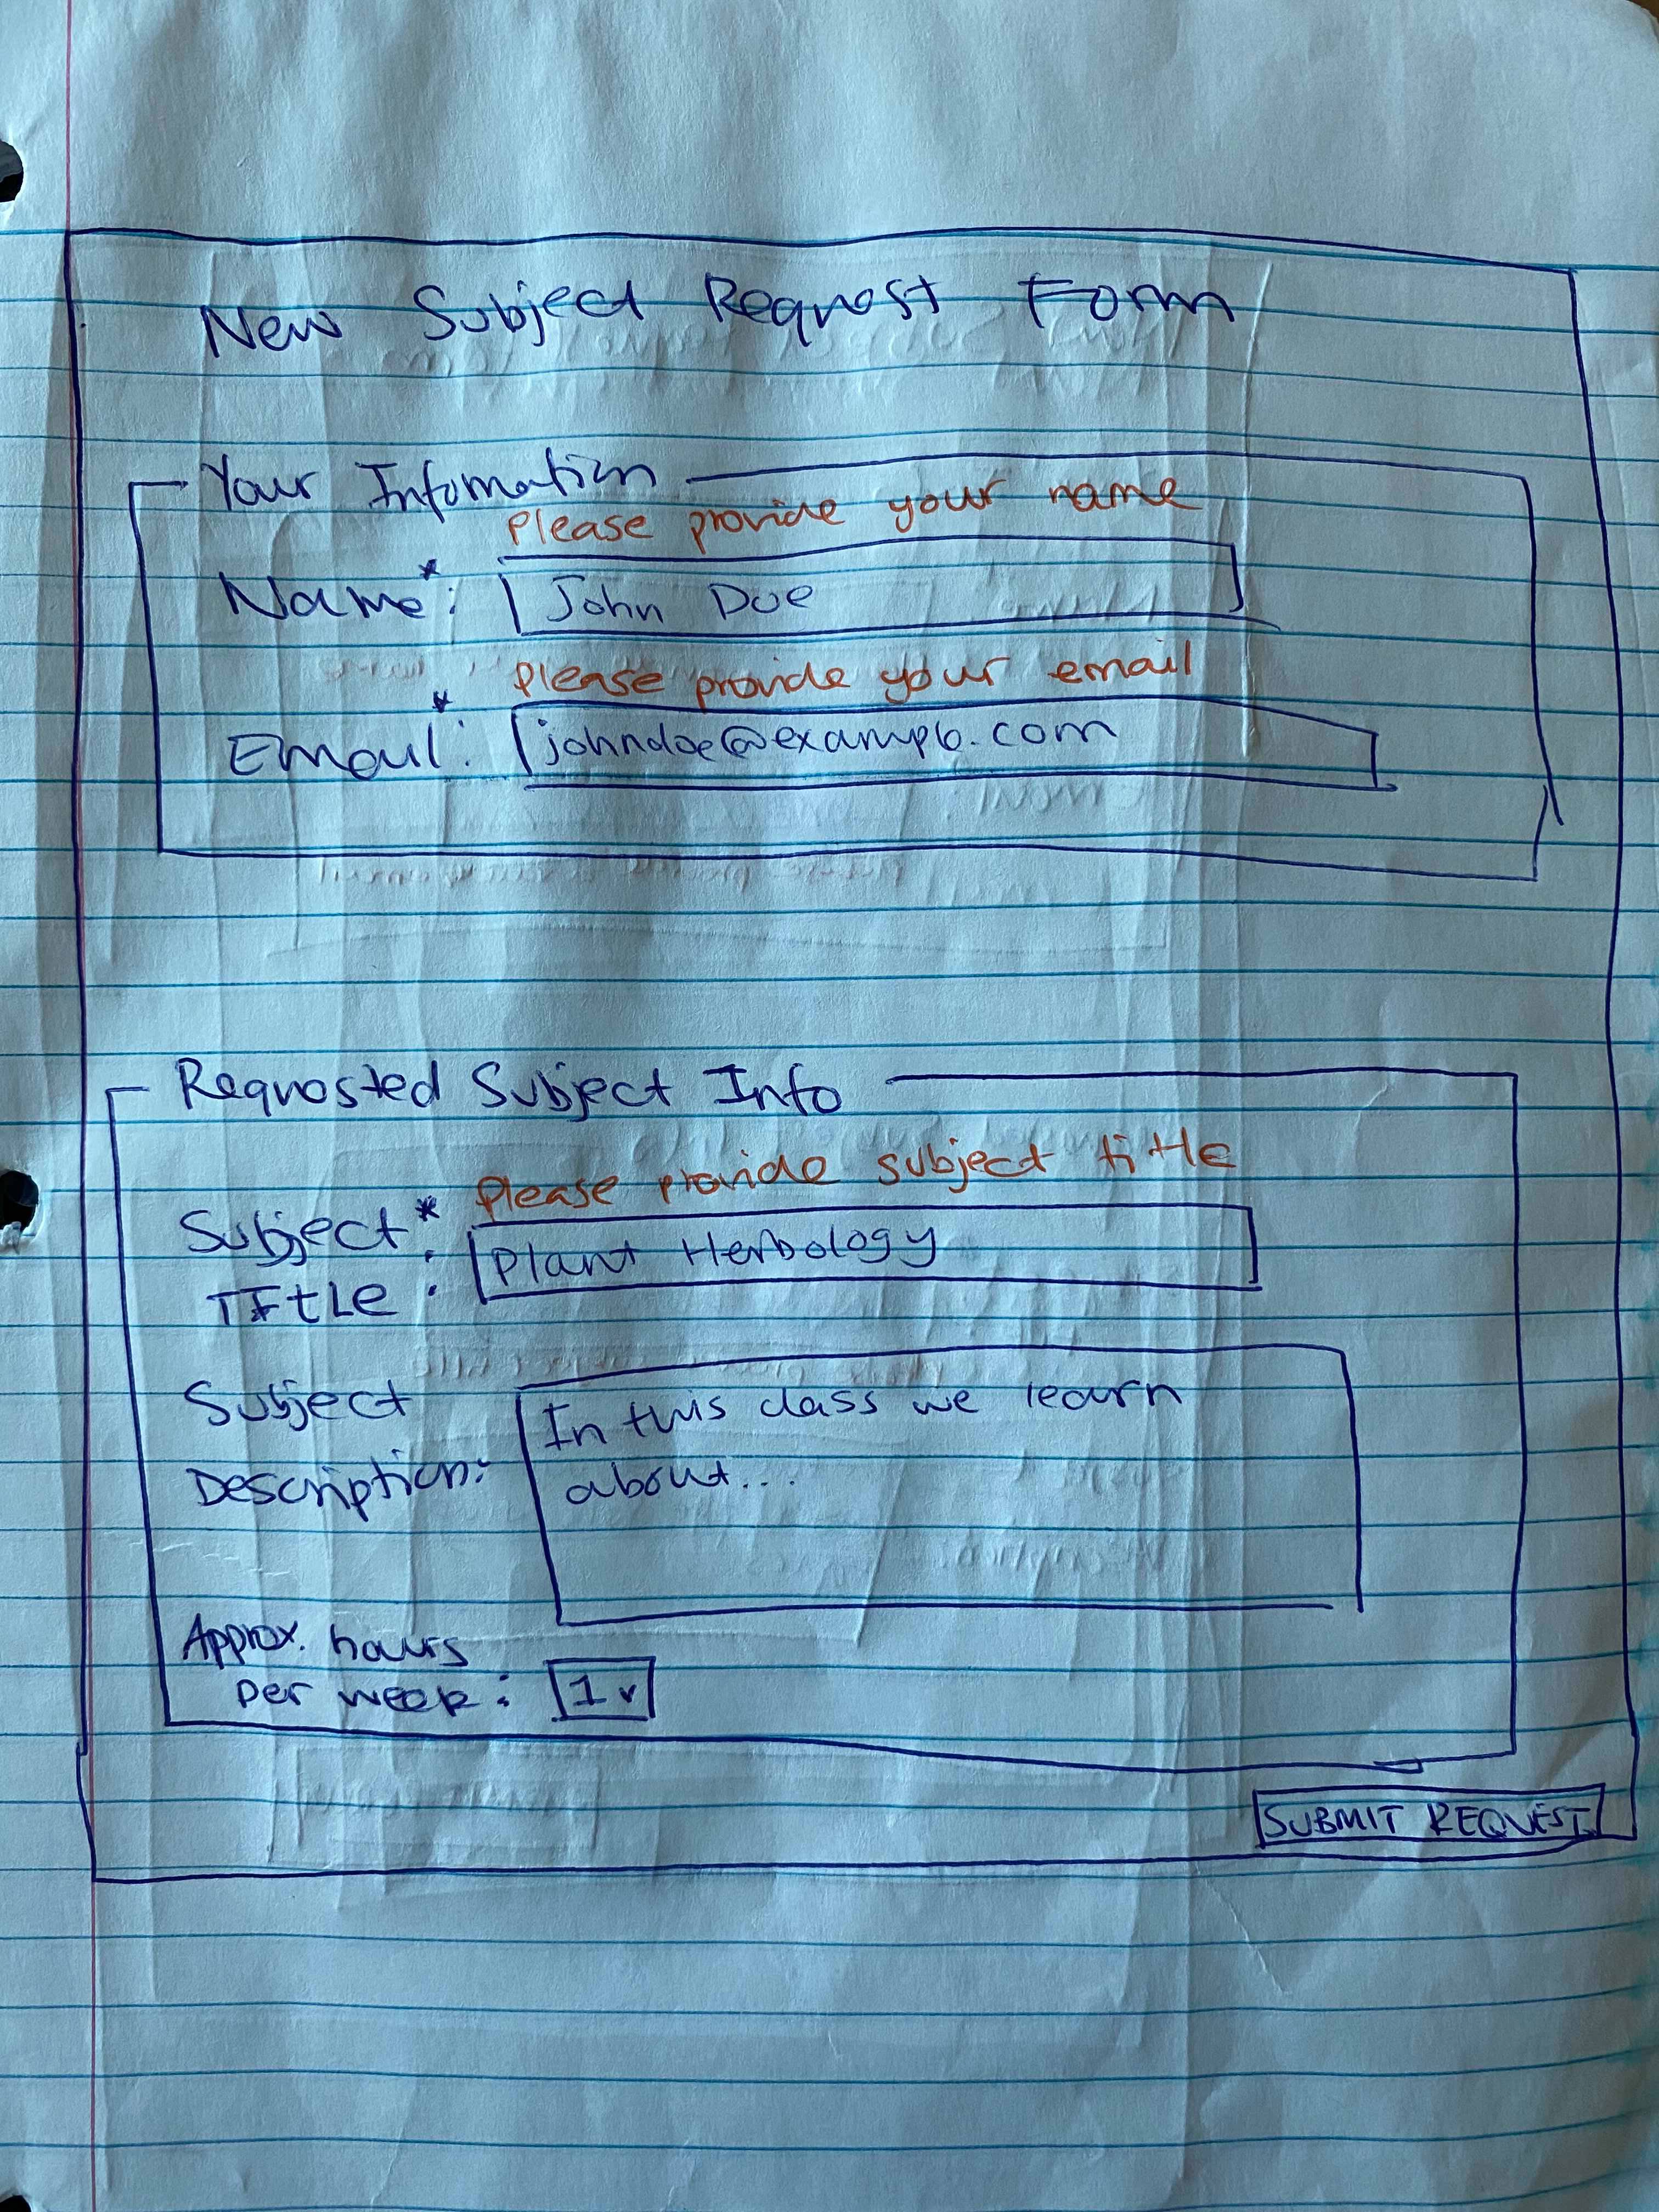 New Subject Request Form
Your Infomation
Please provide your name
Name*: John Doe
Please provide your email
Email*: johndoe@example.com
Requested Subject Info
Please provide subject title
Subject*
Title: Plant Herbology
Subject In this class we learn
Description: about...
Approx. hours
per week: 1 v
SUBMIT REQUEST